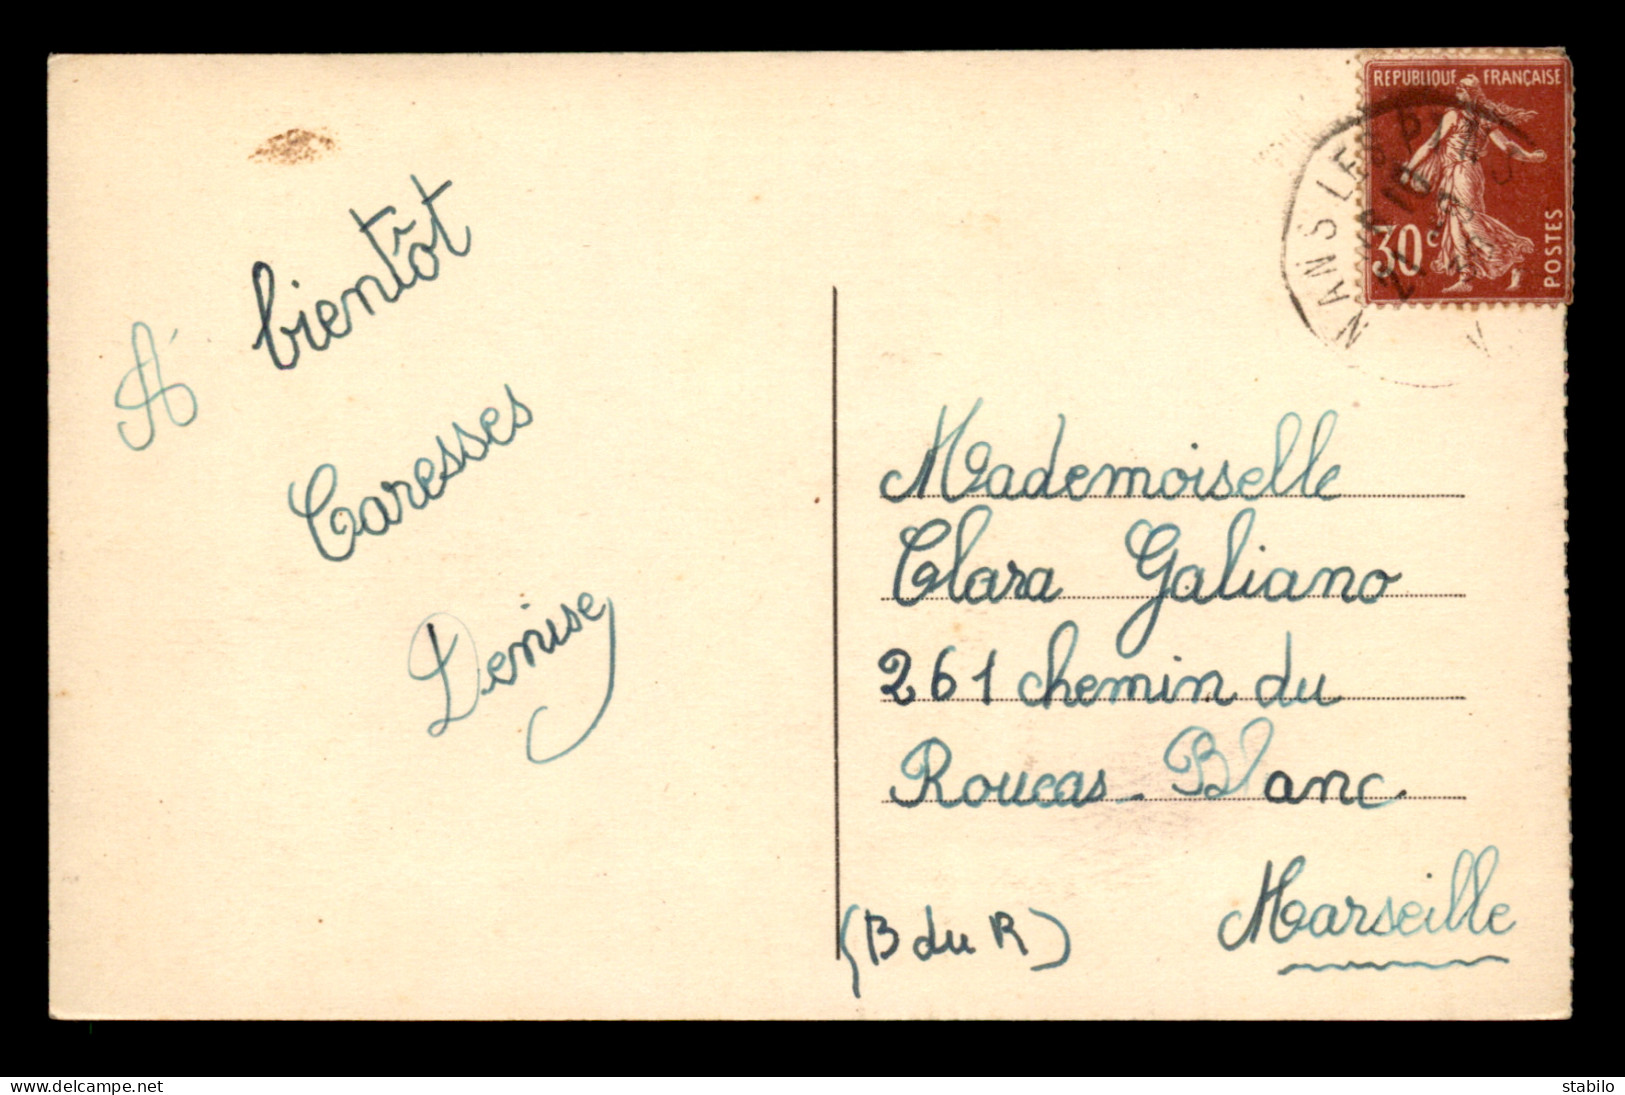 À bientôt
Caresses
Denise
RÉPUBLIQUE FRANÇAISE
30c
POSTES
NANS LES PINS
Mademoiselle
Clara Galiano
261 chemin du
Roucas-Blanc
(B du R) Marseille
delcampe.net
stabilo